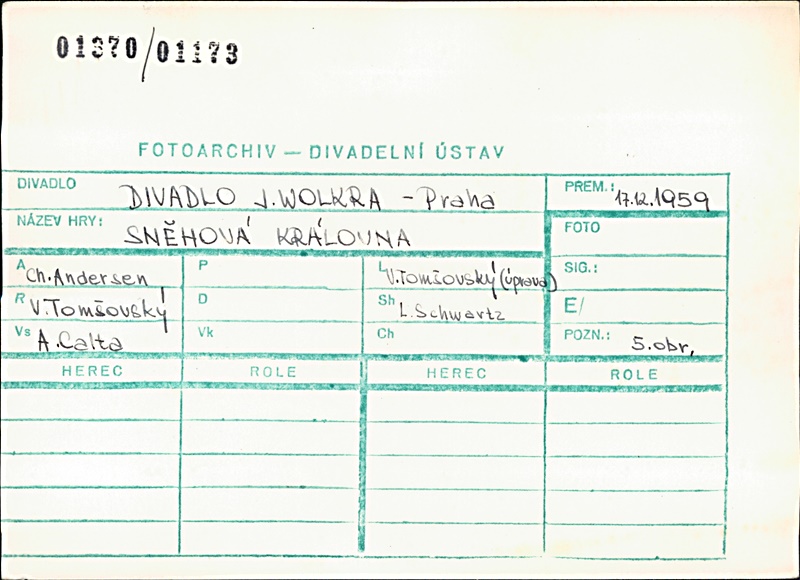 01370/01173
FOTOARCHIV — DIVADELNÍ ÚSTAV
DIVADLO DIVADLO J. WOLKRA - Praha PREM.: 17.12.1959
NÁZEV HRY: SNĚHOVÁ KRÁLOVNA FOTO
A Ch. Andersen P L V. Tomšovský (úprava) SIG.:
R V. Tomšovský D Sh L. Schwartz E/
Vs A. Calta Vk Ch POZN.: 5. obr,
HEREC ROLE HEREC ROLE